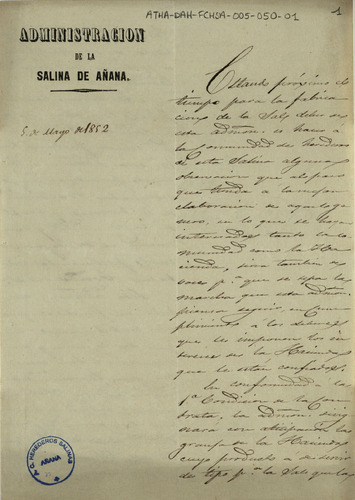 ATHA-DAH-FCHSA-005-050-01
1
ADMINISTRACION
DE LA
SALINA DE AÑANA.
5 de Mayo de 1852
Estando próximo el
tiempo para la fabrica
cion de la Sal, debe
esta admon. hacer a
la Comunidad de
de esta Salina alguna
observacion que al paso
que tienda a la mejor
elaboracion de aquel
en lo que se hara
interesados tanto la Co
munidad como la Ha
cienda, sirva tambien de
pª. que se sepa la
marcha que esta admon.
piensa seguir, en cum
plimiento a los deberes
que le imponen los in
tereses de la Hacienda
que le estan confiados.
En conformidad a la
1ª Condicion de la Con
trata, la admon.
con anticipacion las
de la Hacienda
cuyo producto a de servir
de tipo pª. la Sal que las
P.G. HEREDEROS SALINAS
AÑANA